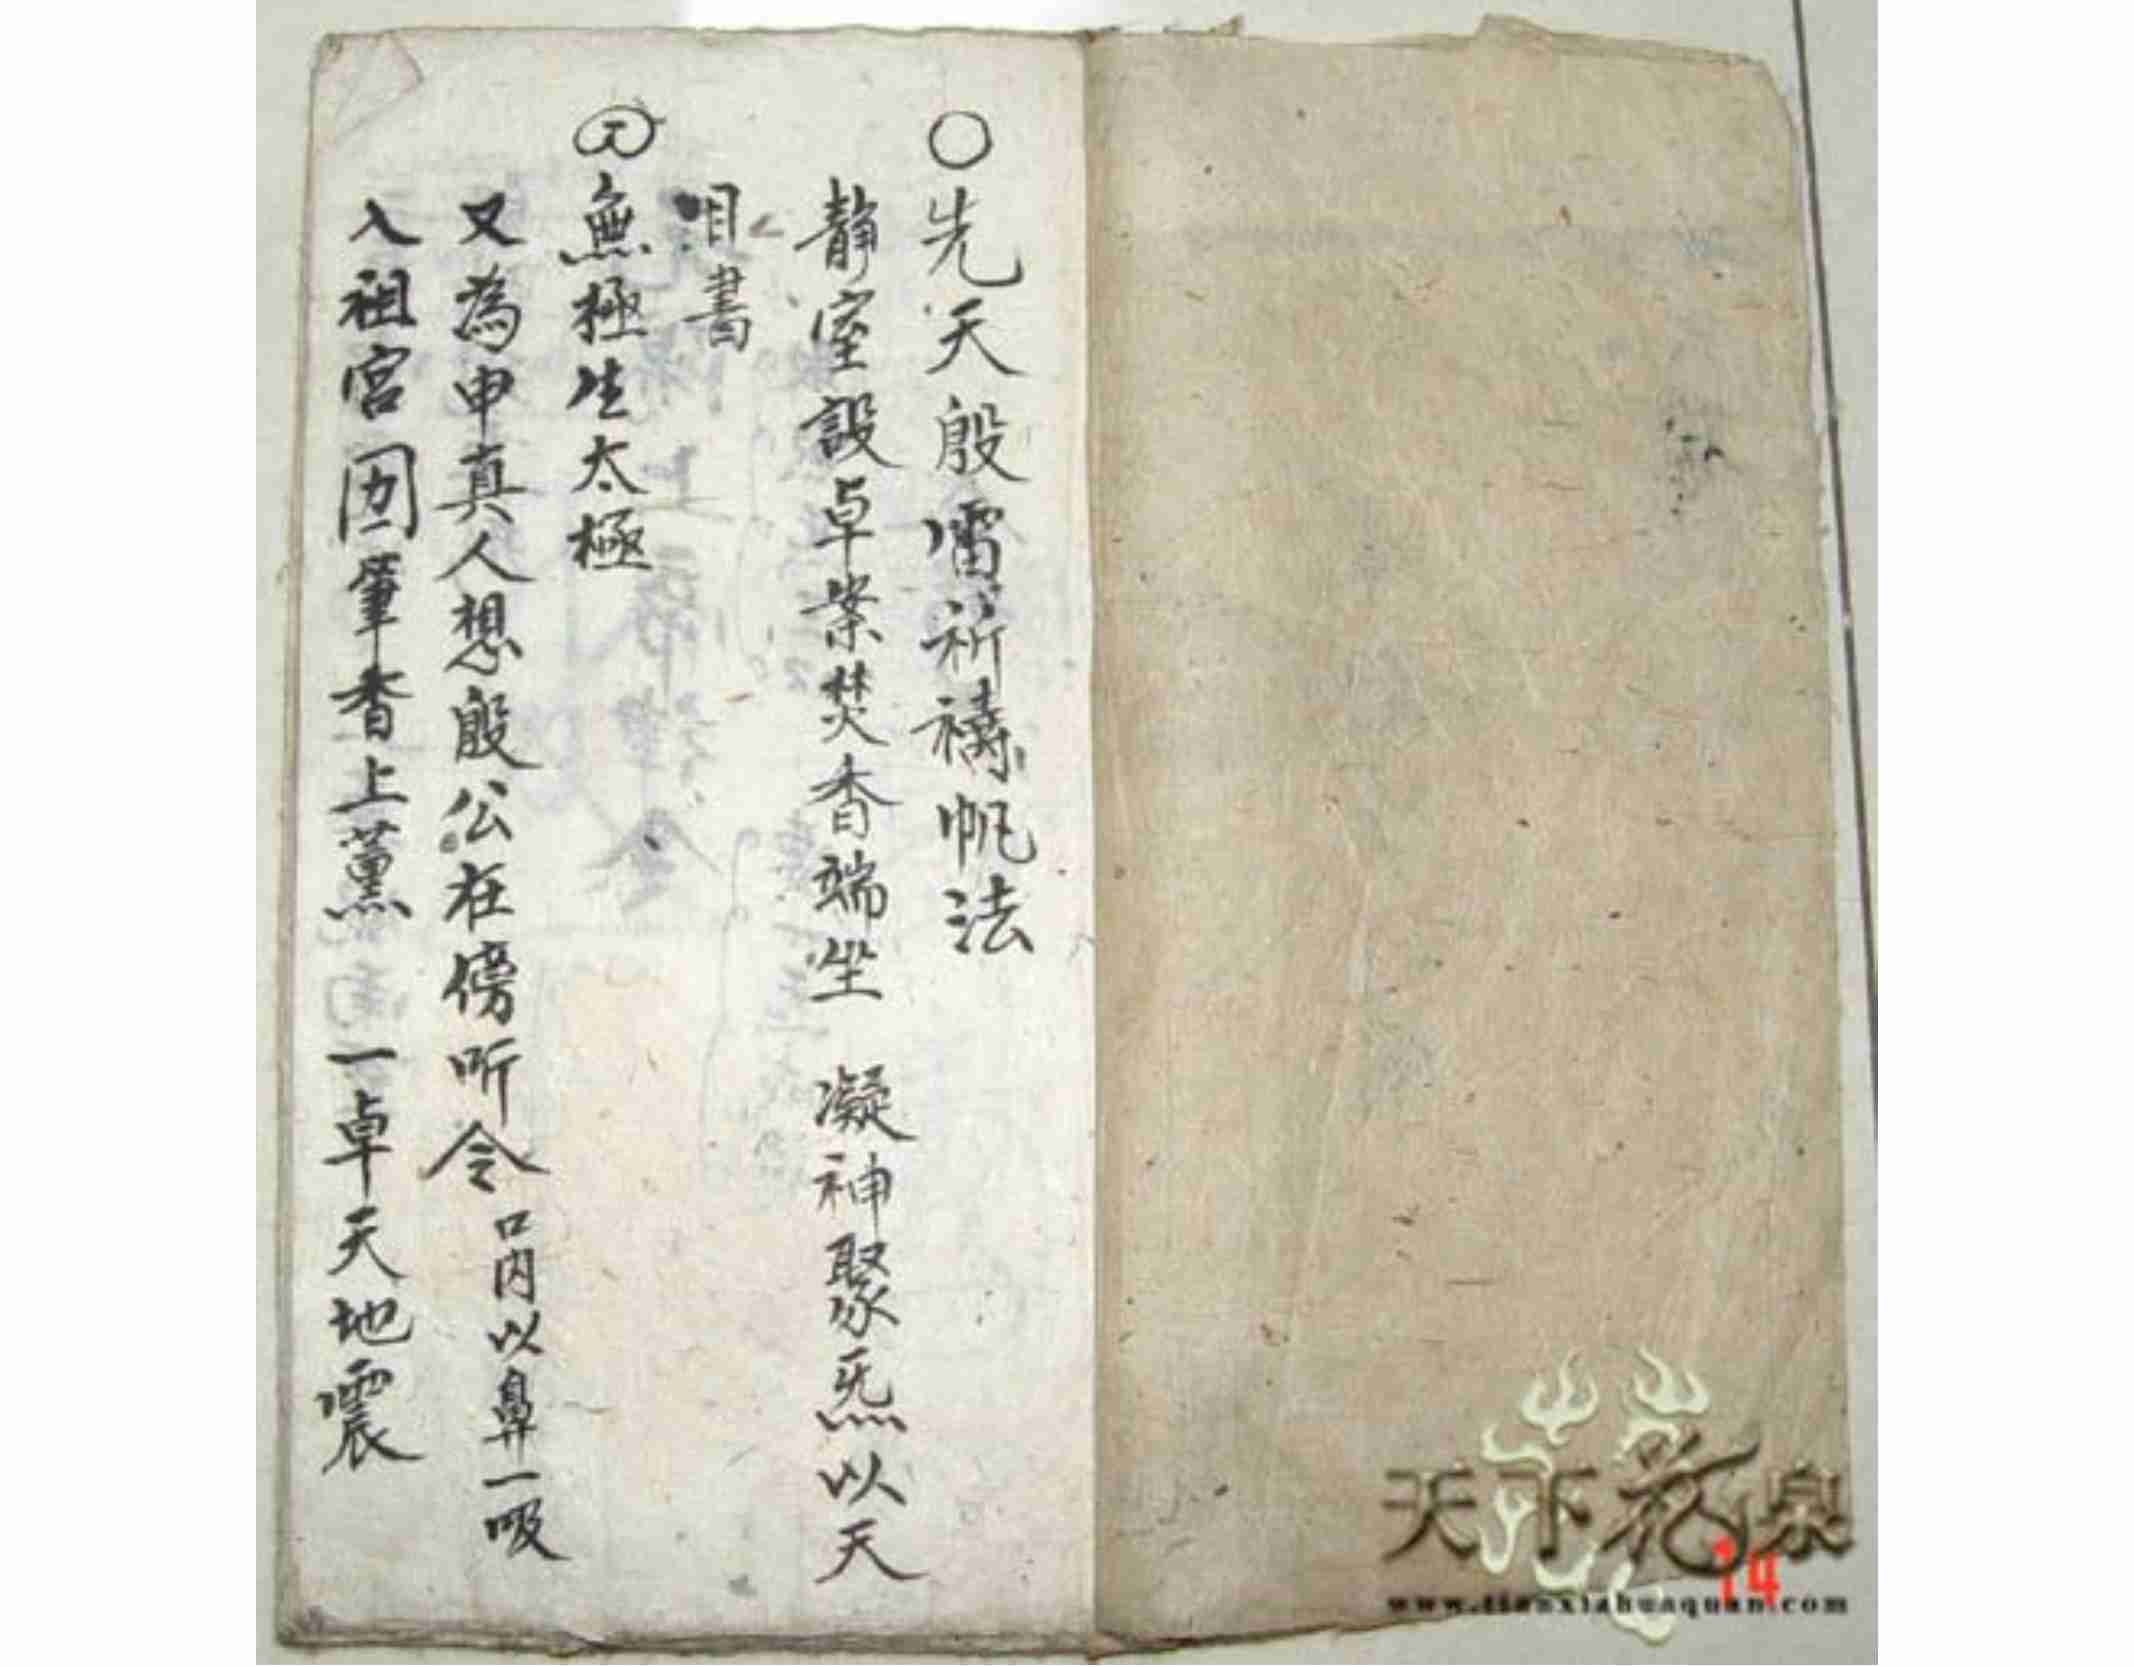 ○先天殷雷祈禱帆法
靜室設卓案焚香端坐 凝神聚炁以天
咀書
無極生太極
又為申真人想殷公在傍听令口內以鼻一吸
入祖宮囝筆香上薰一卓天地震
天下花泉
www.tianxiahuaquan.com
14